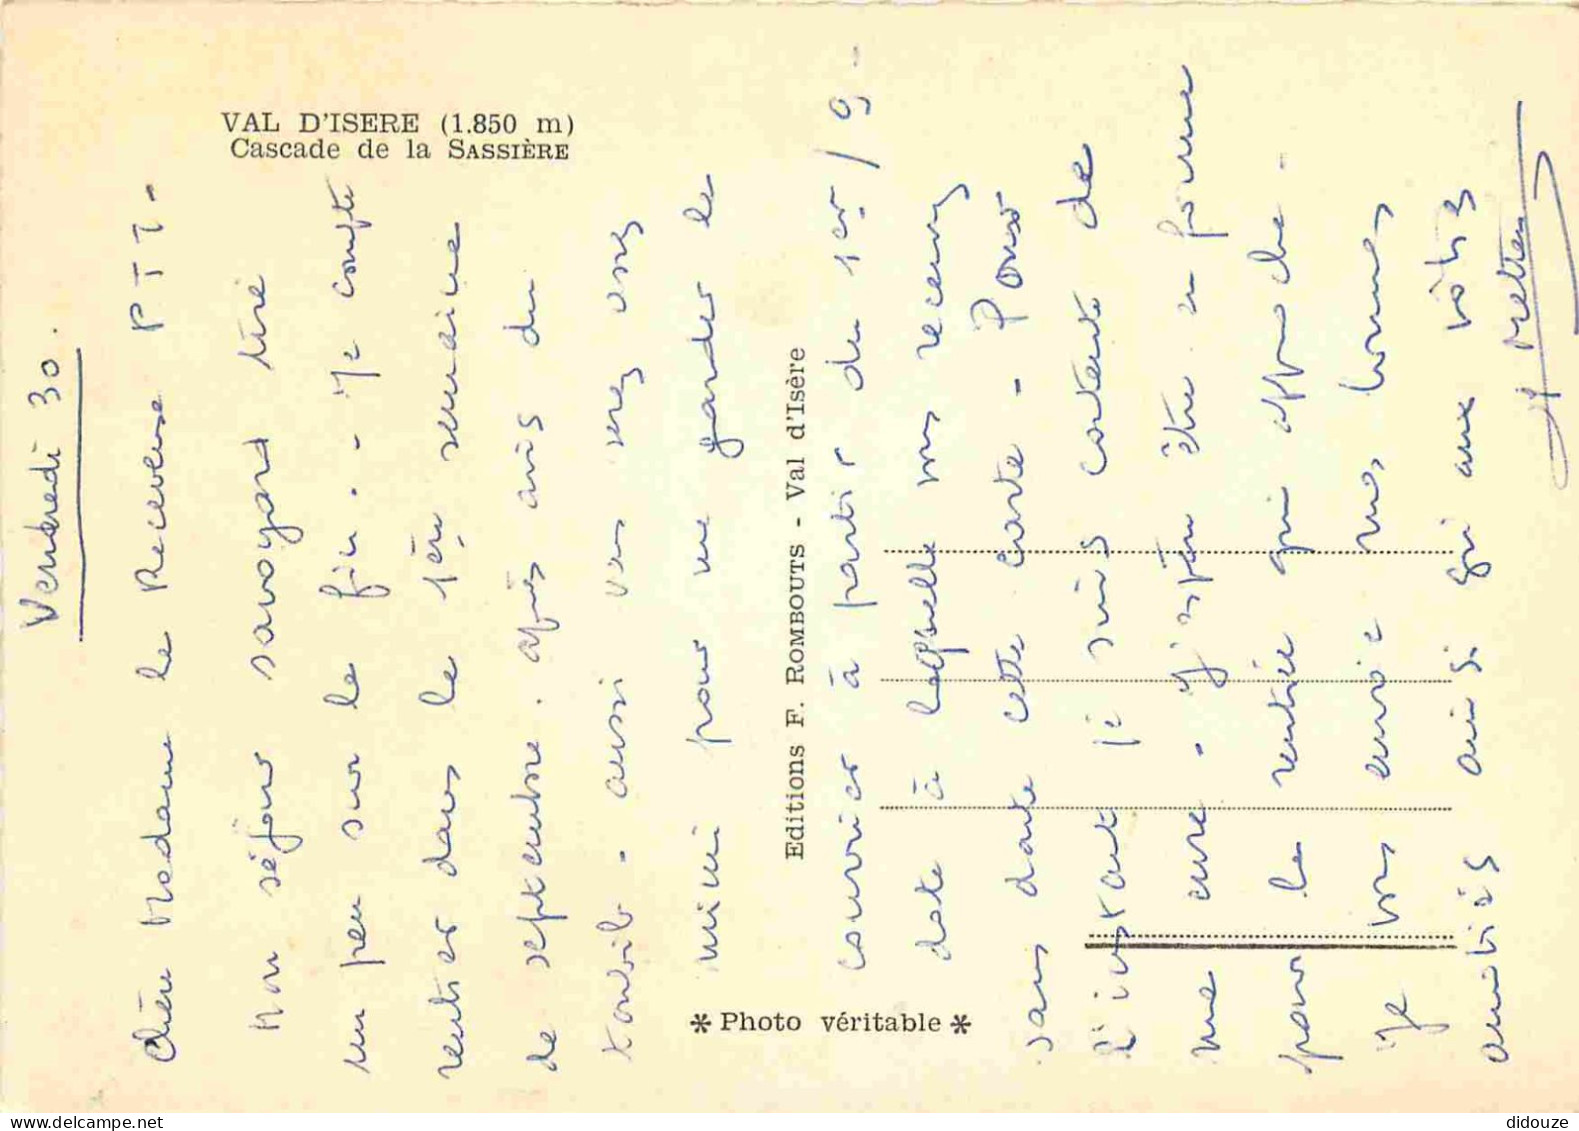 VAL D'ISERE (1.850 m)
Cascade de la SASSIÈRE
Editions F. ROMBOUTS - Val d'Isère
* Photo véritable *
Vendredi 30.
Chère Madame la Receveuse PTT -
Mon séjour savoyard tire
un peu sur la fin. - Je compte
rentrer dans la 1ère semaine
de septembre. après avis du
- aussi
pour me garder le
courrier à partir du 1er / 9 -
date à laquelle vous recevrez
sans doute cette carte - Pour
l'instant je suis contente de
ma cure - J'espère être en forme
pour la rentrée qui approche -
Je vous envoie mes bonnes
amitiés ainsi qu'aux vôtres
didouze